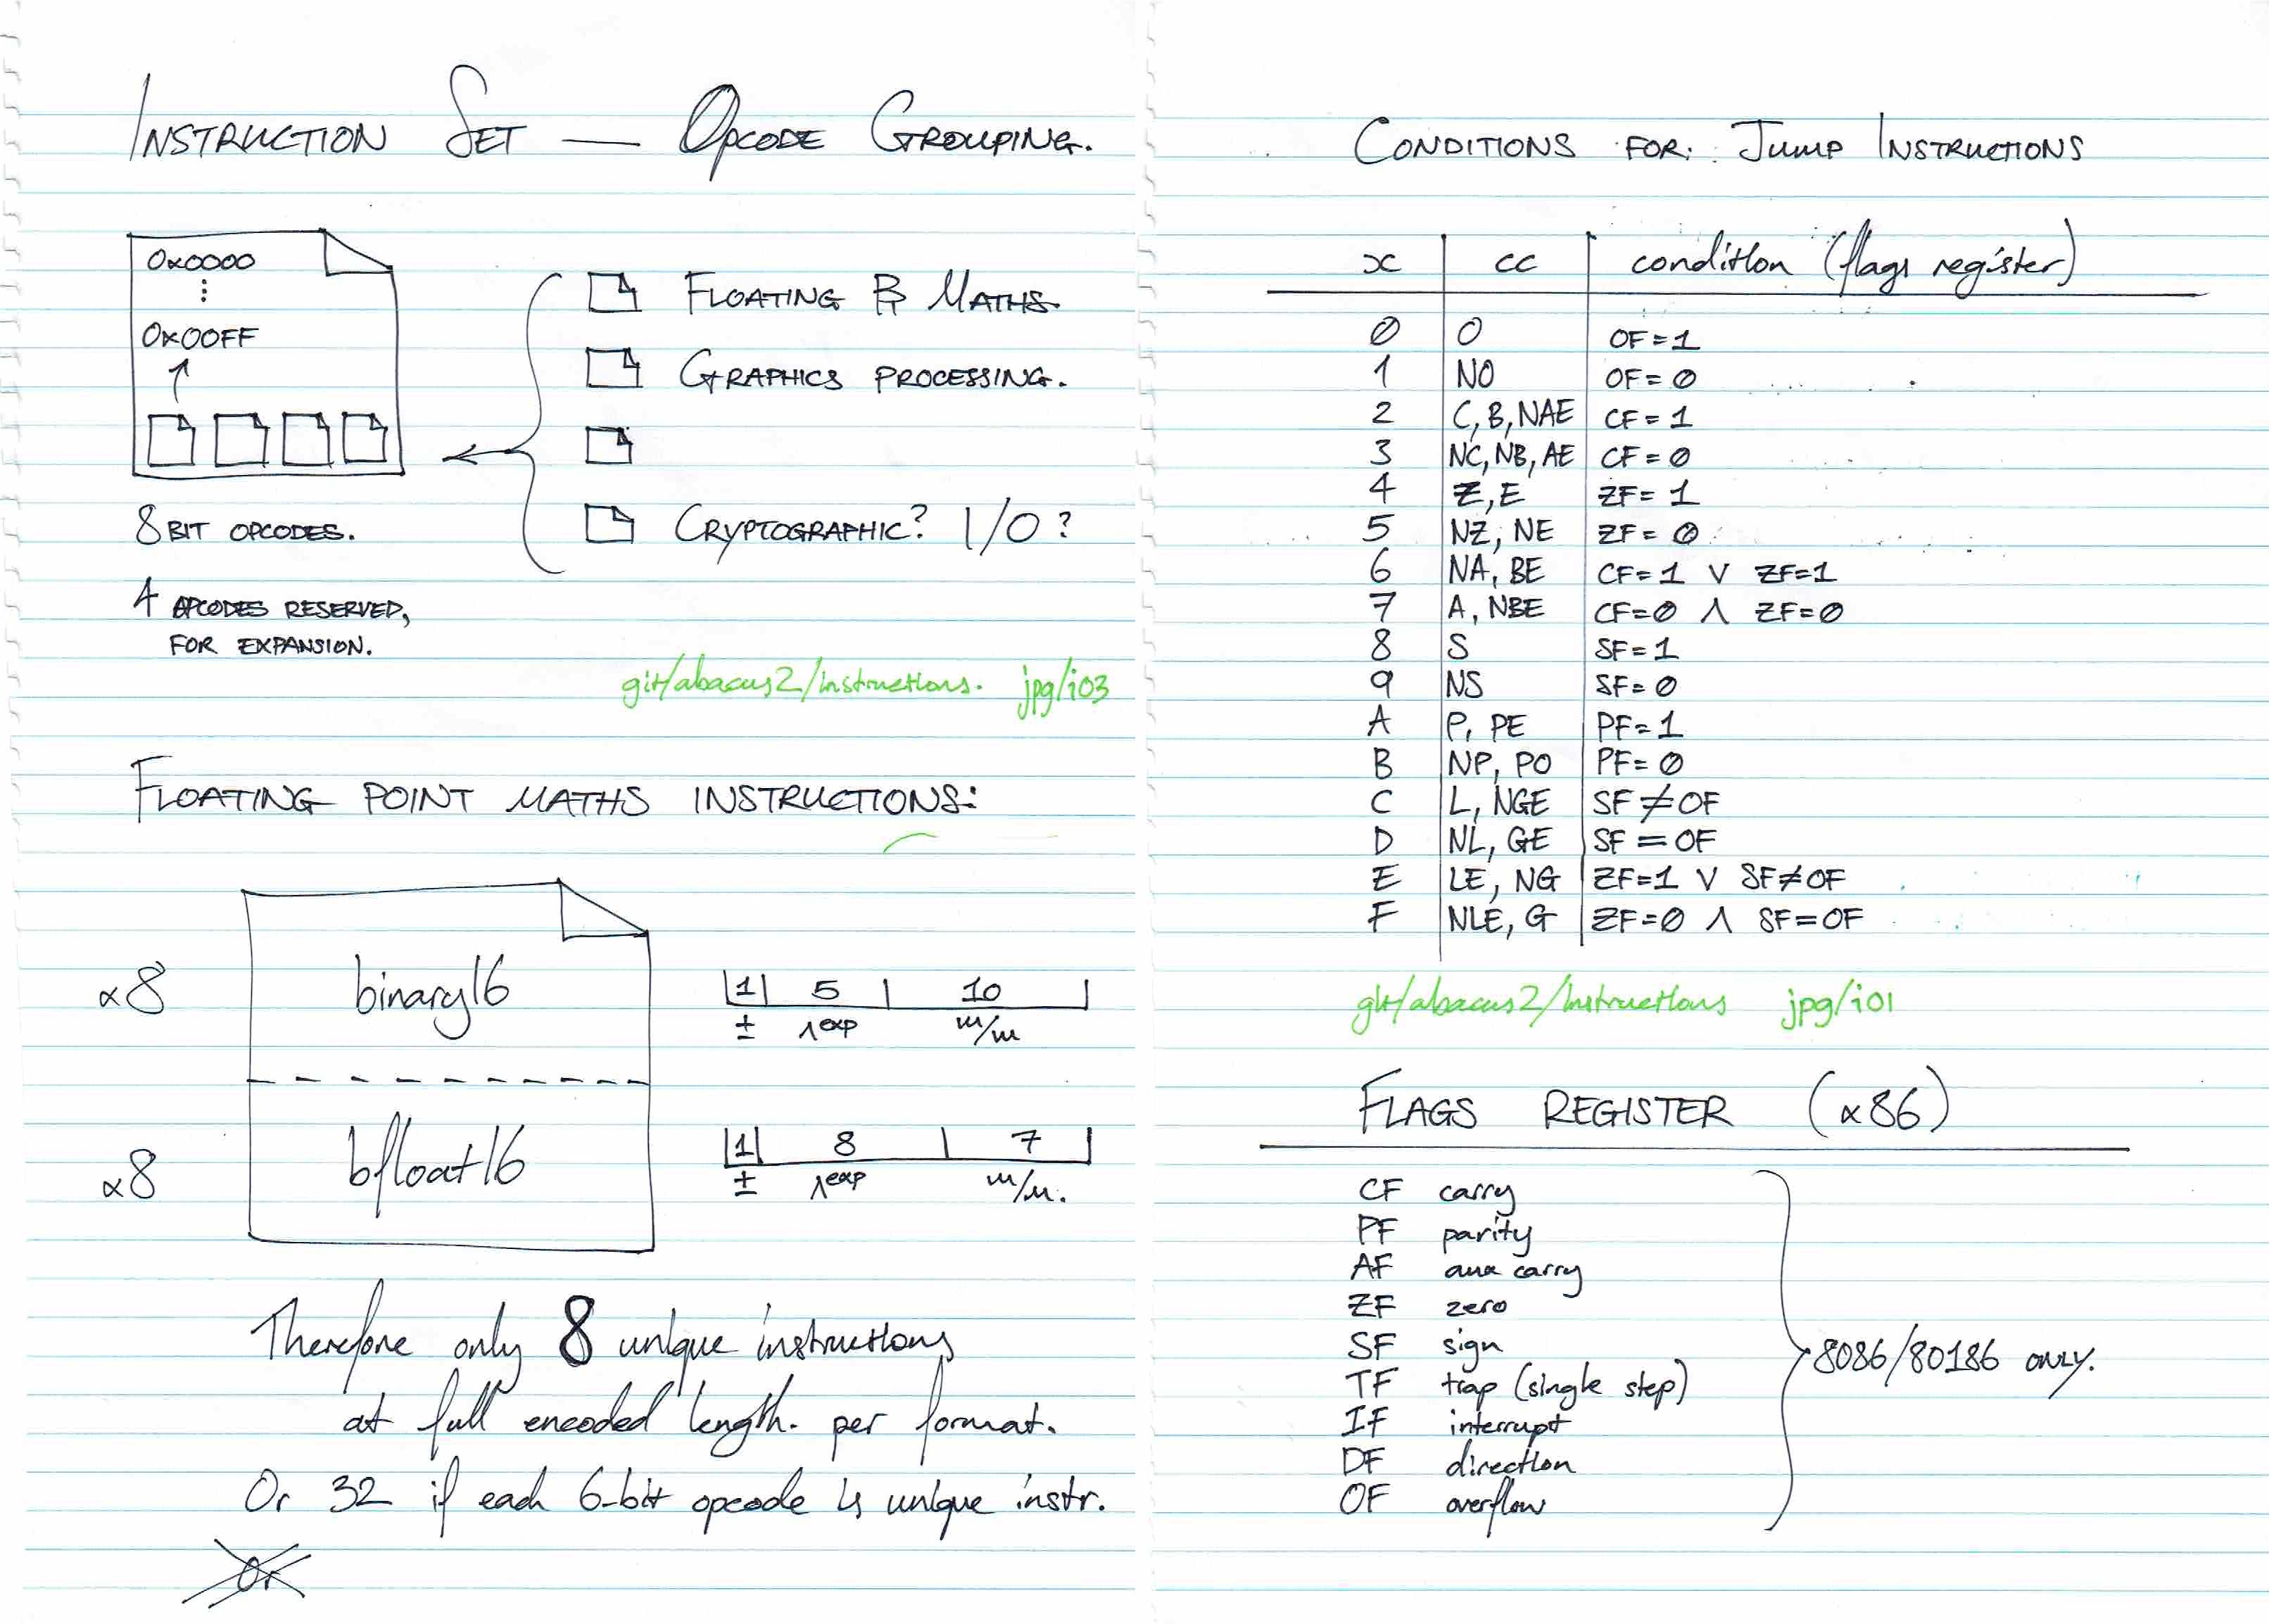 INSTRUCTION SET — OPCODE GROUPING.
0x0000
⋮
0x00FF
FLOATING Pt MATHS.
GRAPHICS PROCESSING.
CRYPTOGRAPHIC? I/O?
8 BIT OPCODES.
4 OPCODES RESERVED,
FOR EXPANSION.
git/abacus2/instructions. jpg/i03
FLOATING POINT MATHS INSTRUCTIONS:
x8 binary16 1 5 10
± ^exp m/m
x8 bfloat16 1 8 7
± ^exp m/m.
Therefore only 8 unique instructions
at full encoded length. per format.
Or 32 if each 6-bit opcode is unique instr.
Or
CONDITIONS FOR: JUMP INSTRUCTIONS
x cc condition (flags register)
0 O OF=1
1 NO OF=0
2 C, B, NAE CF=1
3 NC, NB, AE CF=0
4 Z, E ZF=1
5 NZ, NE ZF=0
6 NA, BE CF=1 ∨ ZF=1
7 A, NBE CF=0 ∧ ZF=0
8 S SF=1
9 NS SF=0
A P, PE PF=1
B NP, PO PF=0
C L, NGE SF≠OF
D NL, GE SF=OF
E LE, NG ZF=1 ∨ SF≠OF
F NLE, G ZF=0 ∧ SF=OF
git/abacus2/instructions jpg/i01
FLAGS REGISTER (x86)
CF carry
PF parity
AF aux carry
ZF zero
SF sign
8086/80186 ONLY.
TF trap (single step)
IF interrupt
DF direction
OF overflow